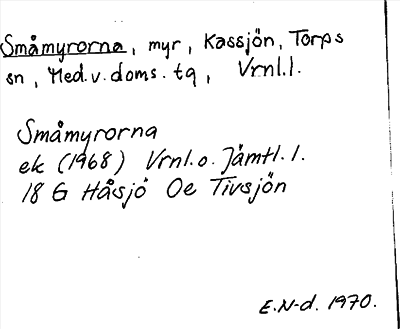 Småmyrorna, myr, Kassjön, Torps
sn, Med.v.doms.tg, Vrnl.l.
Småmyrorna
ek (1968) Vrnl.o.Jämtl.l.
18 G Håsjö Oe Tivsjön
E.N-d. 1970.